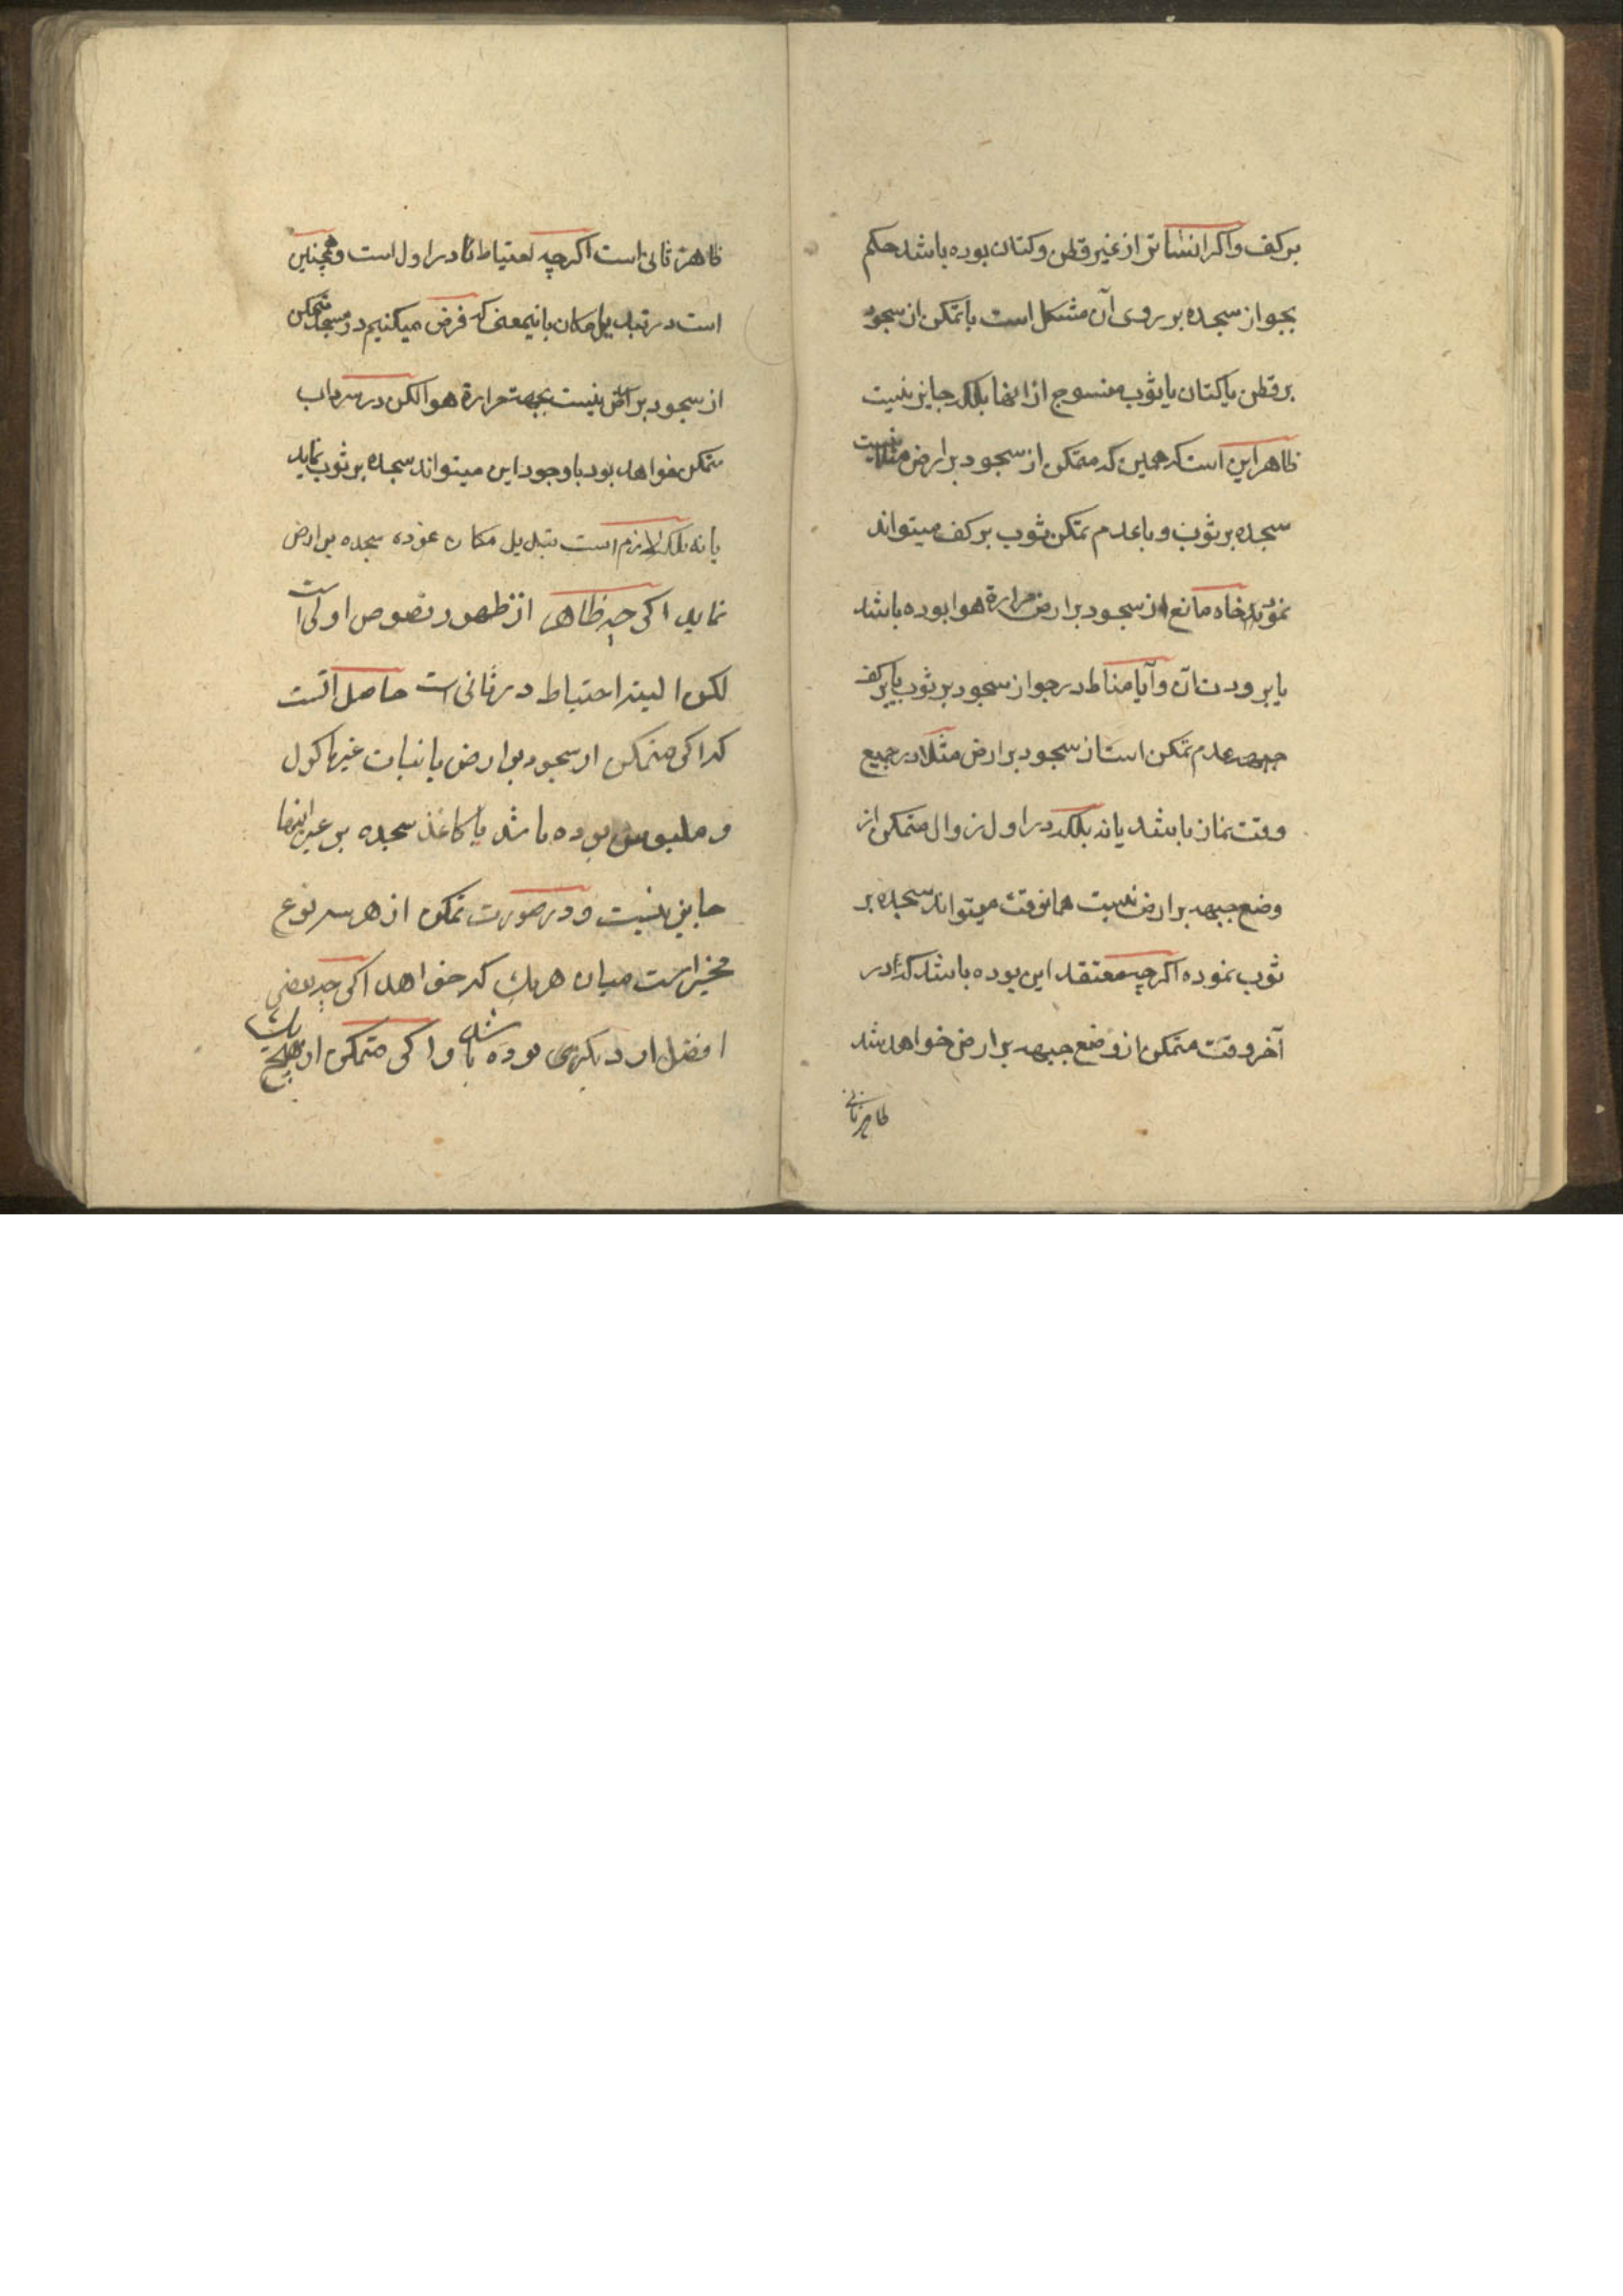 بر کف و اکر انشاتر از غیر قطن و کتان بوده باشد حکم
بجواز سجده بر روی آن مشکل است با تمکن از سجود
بر قطن یا کتان یا ثوب منسوج از انها بلکه جایز نیست
ظاهر این است که همین که متمکن از سجود بر ارض مثلا نیست
سجده بر ثوب و با عدم تمکن ثوب بر کف میتواند
نمود خاه مانع از سجود بر ارض حرارة هوا بوده باشد
یا برودت آن و آیا مناط در جواز سجود بر ثوب یا بر کف
عدم تمکن است از سجود بر ارض مثلا در جمیع
وقت نماز باشد یا نه بلکه در اول زوال متمکن از
وضع جبهه بر ارض نیست همانوقت میتواند سجده بر
ثوب نموده اکرچه معتقد این بوده باشد که در
آخر وقت متمکن از وضع جبهه بر ارض خواهد شد
ظاهر ثانی
ظاهر ثانی است اکرچه احتیاط در اول است و همچنین
است در تبدیل مکان باینمعنی که فرض میکنیم در مسجد متمکن
از سجود بر ارض نیست بجهت حرارة هوا لکن در سرداب
متمکن خواهد بود با وجود این میتواند سجده بر ثوب نماید
یا نه بلکه لازم است تبدیل مکان نموده سجده بر ارض
نماید اکرچه ظاهر از ظهور نصوص اولی است
لکن البته احتیاط در ثانی است حاصل آنست
که اکر متمکن از سجود بر ارض یا نبات غیر ماکول
و ملبوس بوده باشد یا کاغذ سجده بر غیر اینها
جایز نیست و در صورت تمکن از هر سه نوع
مخیر است میان هر یک که خواهد اکرچه بعضی
افضل از دیکری بوده باشد و اکر متمکن از هیچ یک